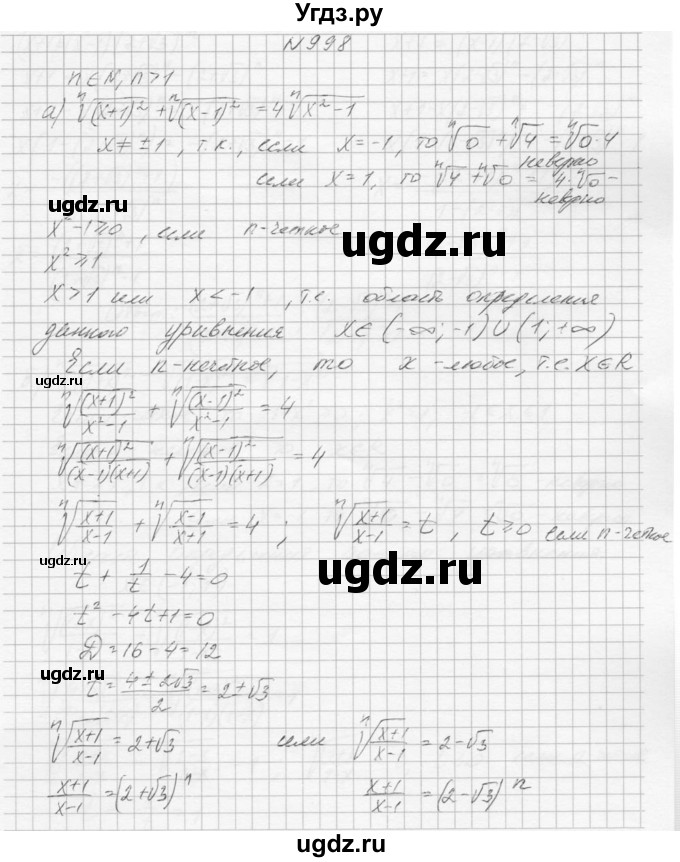 Угдз.ру
N998
n∈N, n>1
а) ⁿ√(x+1)² + ⁿ√(x-1)² = 4 ⁿ√x²-1
x≠±1, т.к., если x=-1, то ⁿ√0 + ⁿ√4 = ⁿ√0·4
неверно
если x=1, то ⁿ√4 + ⁿ√0 = 4·ⁿ√0 -
неверно
x²-1≥0, если n-четное
ugdz.ru ugdz.ru
x²≥1
x>1 или x<-1, т.е. область определения
данного уравнения x∈(-∞;-1)∪(1;+∞)
Если n-нечетное, то x-любое, т.е. x∈R
ugdz.ru
ⁿ√(x+1)²/x²-1 + ⁿ√(x-1)²/x²-1 = 4
ⁿ√(x+1)²/(x-1)(x+1) + ⁿ√(x-1)²/(x-1)(x+1) = 4
ⁿ√x+1/x-1 + ⁿ√x-1/x+1 = 4; ⁿ√x+1/x-1 = t, t≥0 если n-четное
t + 1/t - 4 = 0
ugdz.ru
t² - 4t + 1 = 0
D = 16 - 4 = 12
ugdz.ru
t = 4±2√3/2 = 2±√3
ⁿ√x+1/x-1 = 2+√3 если ⁿ√x+1/x-1 = 2-√3
x+1/x-1 = (2+√3)ⁿ x+1/x-1 = (2-√3)ⁿ
ugdz.ru